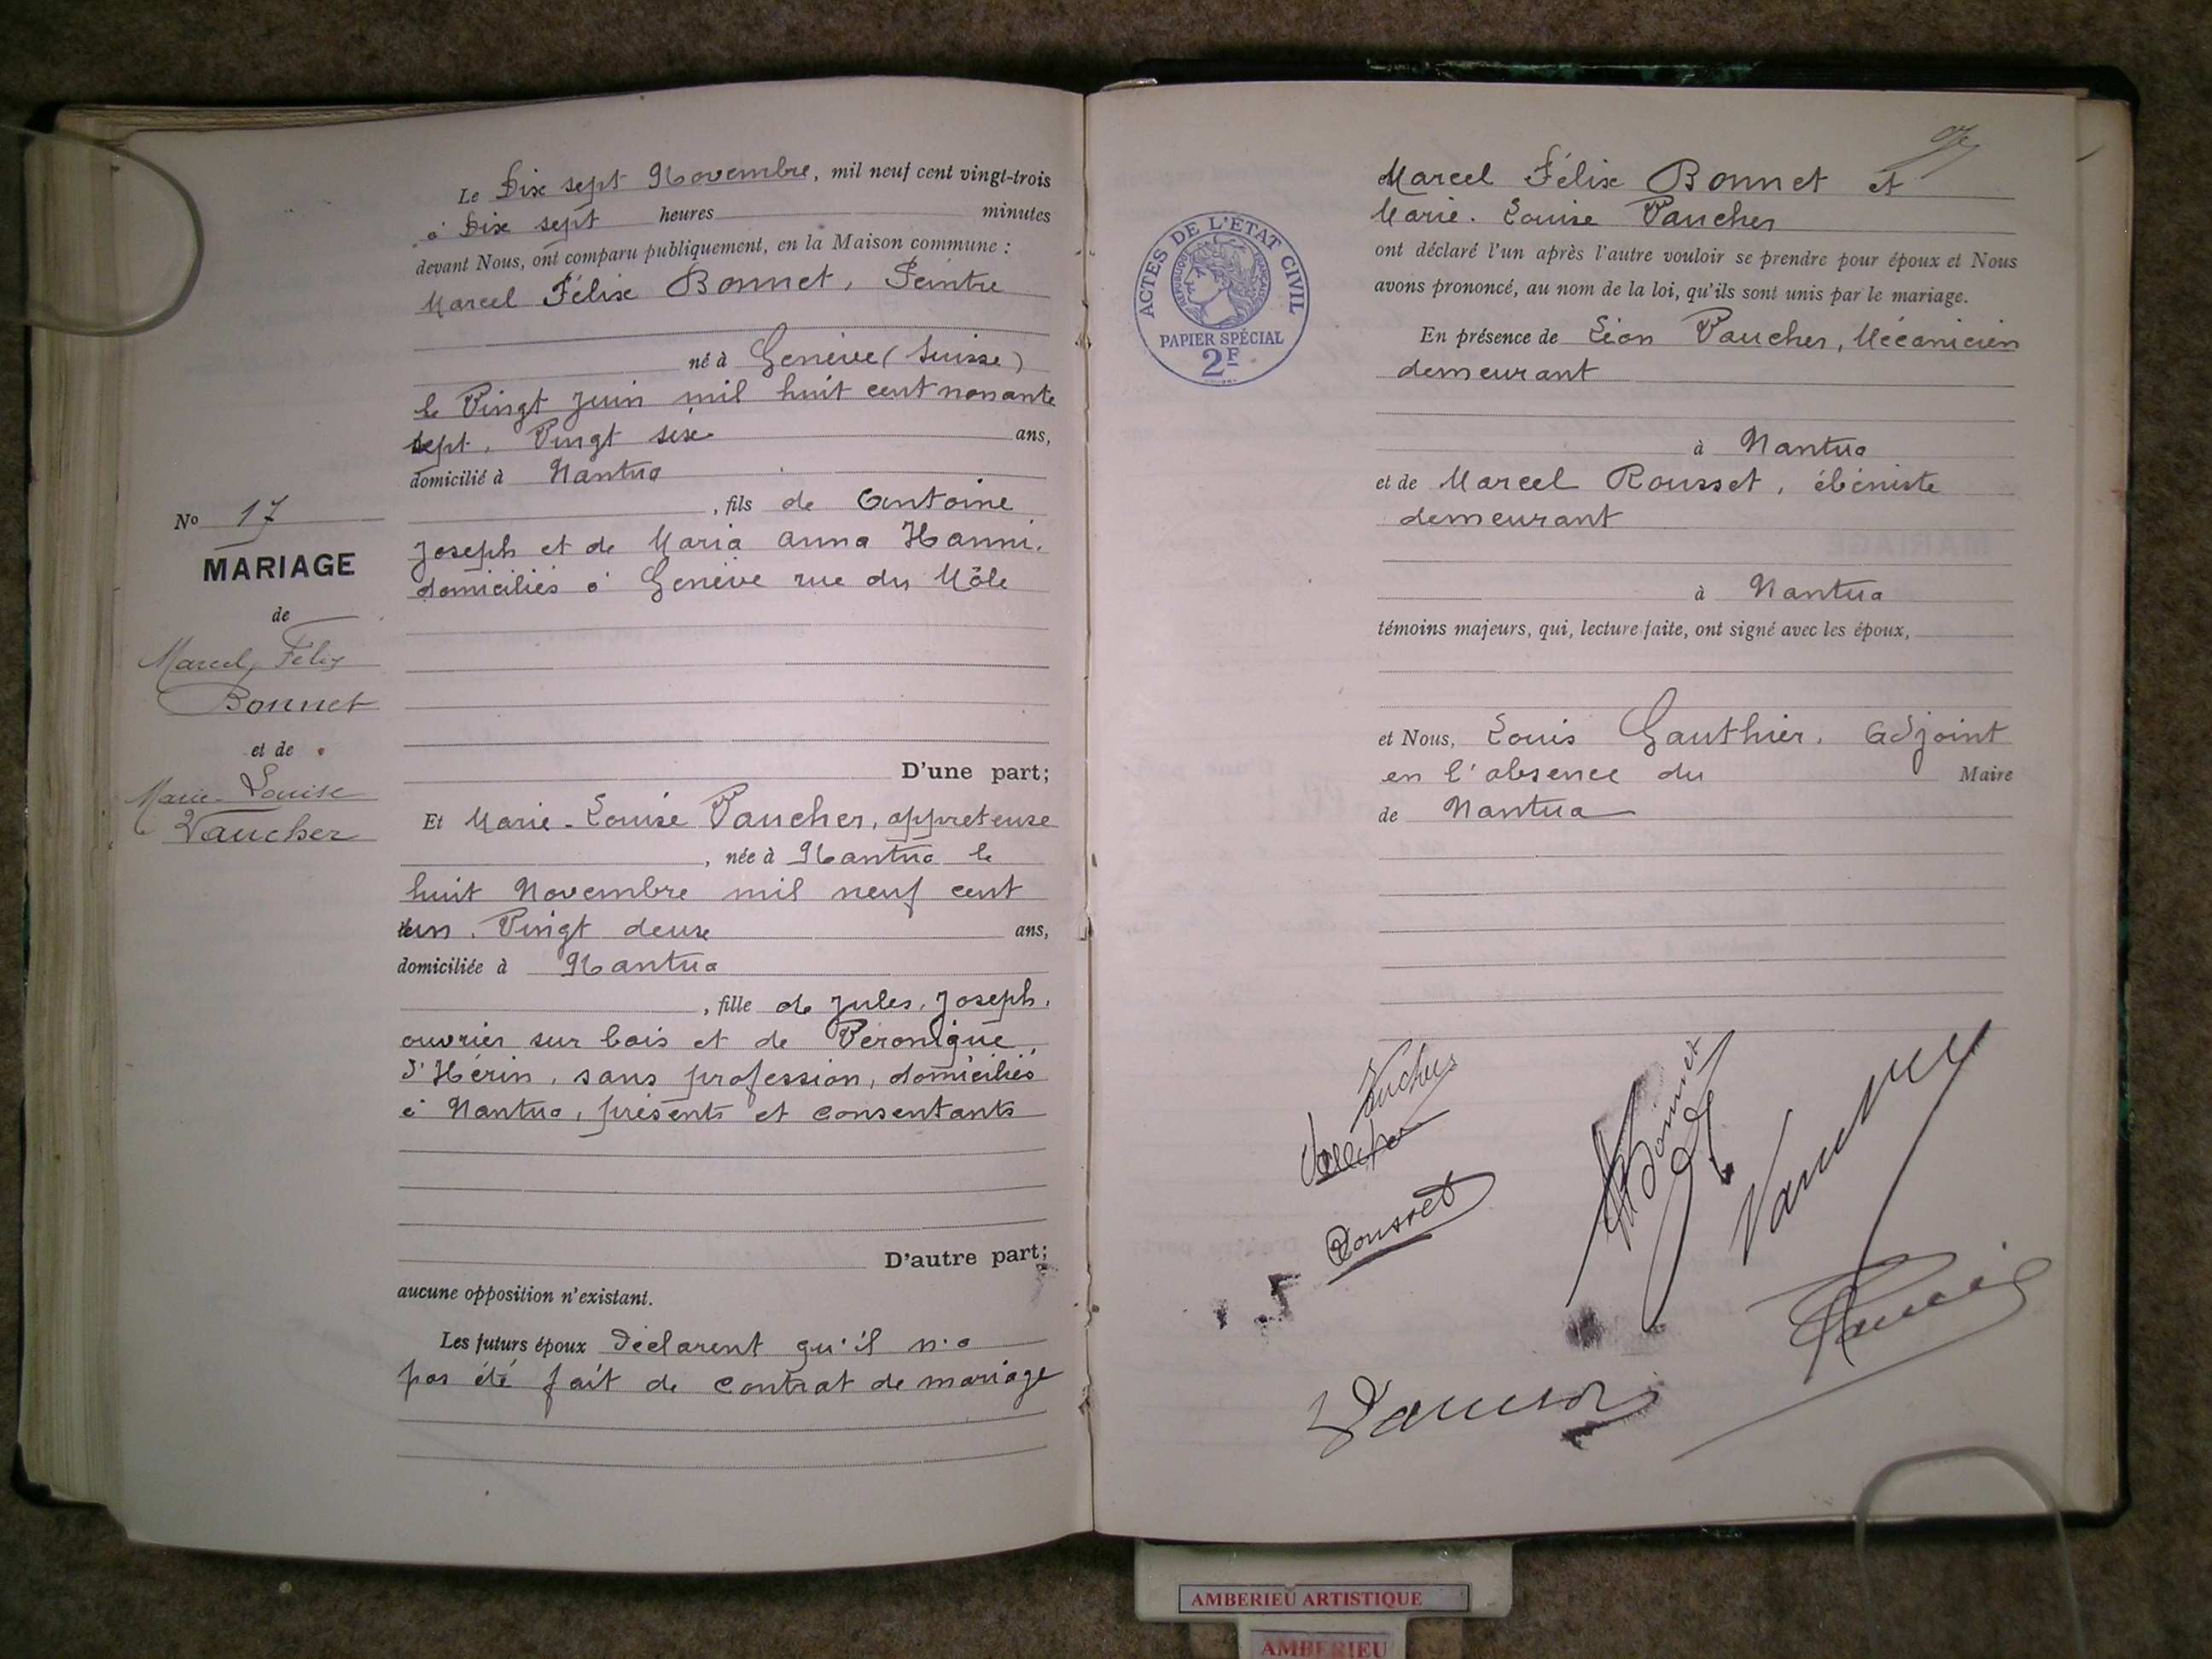 Le Dix sept Novembre, mil neuf cent vingt-trois
à Dix sept heures minutes
devant Nous, ont comparu publiquement, en la Maison commune :
Marcel Félix Bonnet, Peintre
né à Genève (Suisse)
le Vingt Juin mil huit cent nonante
sept, Vingt six ans,
domicilié à Nantua
, fils de Antoine
Joseph et de Maria Anna Hanni,
domiciliés à Genève rue du Môle
D'une part;
Et Marie-Louise Vaucher, appreteuse
, née à Nantua le
huit Novembre mil neuf cent
un, Vingt deux ans,
domiciliée à Nantua
, fille de Jules, Joseph,
ouvrier sur bois et de Véronique
d'Hérin, sans profession, domiciliés
à Nantua, présents et consentants
D'autre part;
aucune opposition n'existant.
Les futurs époux déclarent qu'il n'a
pas été fait de contrat de mariage
No 17
MARIAGE
de
Marcel, Félix
Bonnet
et de
Marie-Louise
Vaucher
Marcel Félix Bonnet et
Marie-Louise Vaucher
ont déclaré l'un après l'autre vouloir se prendre pour époux et Nous
avons prononcé, au nom de la loi, qu'ils sont unis par le mariage.
En présence de Léon Vaucher, Mécanicien
demeurant
à Nantua
et de Marcel Rousset, ébéniste
demeurant
à Nantua
témoins majeurs, qui, lecture faite, ont signé avec les époux,
et Nous, Louis Gauthier, Adjoint
en l'absence du Maire
de Nantua
ACTES DE L'ÉTAT CIVIL
RÉPUBLIQUE FRANÇAISE
PAPIER SPÉCIAL
2F
Vaucher
Bonnet
Vaucher
Rousset
AMBERIEU ARTISTIQUE
AMBERIEU